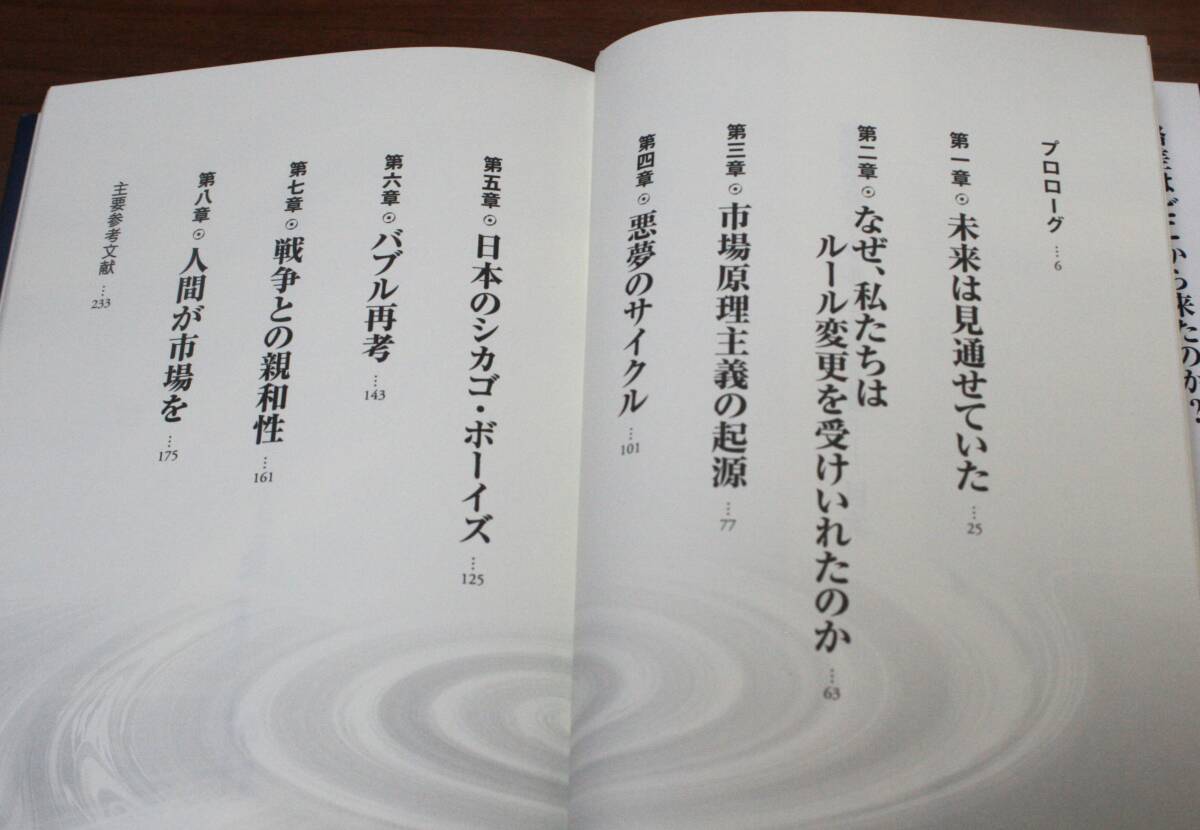 から来たのか?
プロローグ … 6
第一章⊙未来は見通せていた … 25
第二章⊙なぜ、私たちは
ルール変更を受けいれたのか … 63
第三章⊙市場原理主義の起源 … 77
第四章⊙悪夢のサイクル … 101
第五章⊙日本のシカゴ・ボーイズ … 125
第六章⊙バブル再考 … 143
第七章⊙戦争との親和性 … 161
第八章⊙人間が市場を … 175
主要参考文献 … 233